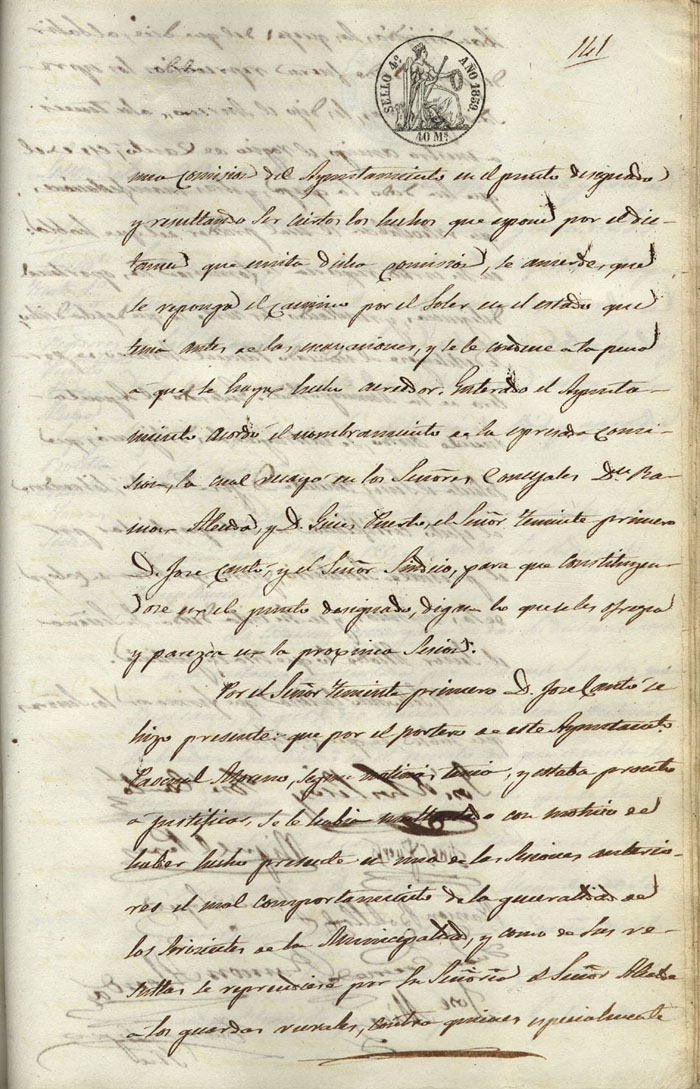 141
SELLO 4º AÑO 1859.
40 Ms.
una Comision del Ayuntamiento en el punto designado
y resultando ser ciertos los hechos que espone por el dic-
tamen que emita dicha comision, se acuerde, que
se reponga el camino por el Soler en el estado que
tenia antes de las escavaciones, y se le condene a la pena
a que se haya hecho acreedor. Enterado el Ayunta-
miento acordó el nombramiento de la espresada comi-
sion, la cual recayó en los Señores Concejales Dn. Ra-
mon Alcida, y D. Gines Puerto, el Señor Teniente primero
D. Jose Cantó, y el Señor Sindico, para que constituyen-
dose en el punto designado, digan lo que se les ofrezca
y parezca en la proxima Sesion.
Por el Señor Teniente primero D. Jose Cantó se
hizo presente: que por el portero de este Ayuntamiento
Pascual Moreno, segun noticias tenia, y estaba pronto
a justificar, se le habia con motivo de
haber hecho presente en una de las sesiones anterio-
res el mal comportamiento de la generalidad de
los sirvientes de la Municipalidad, y como de sus re-
sultas se reprendiera por su Señoria el Señor Alcalde
a los guardas rurales, contra quienes especialmente